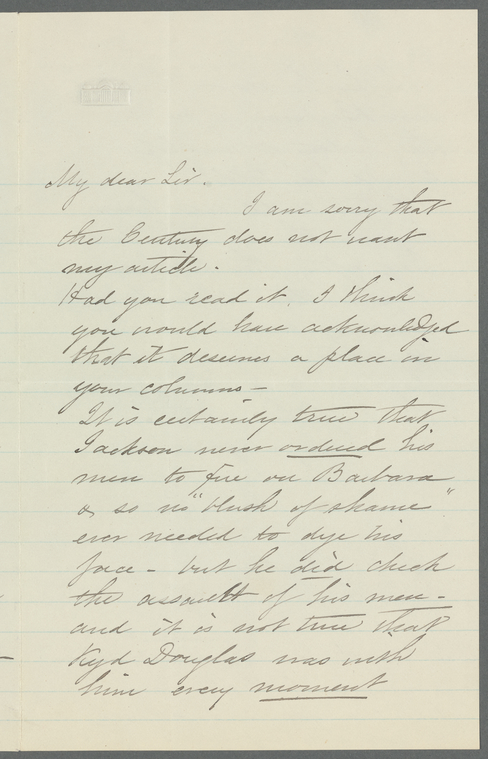 My dear Sir.
I am sorry that
the Century does not want
my article.
Had you read it, I think
you would have acknowledged
that it deserves a place in
your columns –
It is certainly true that
Jackson never ordered his
men to fire on Barbara
& so no "blush of shame"
ever needed to dye his
face – but he did check
the assault of his men –
and it is not true that
Kyd Douglas was with
him every moment